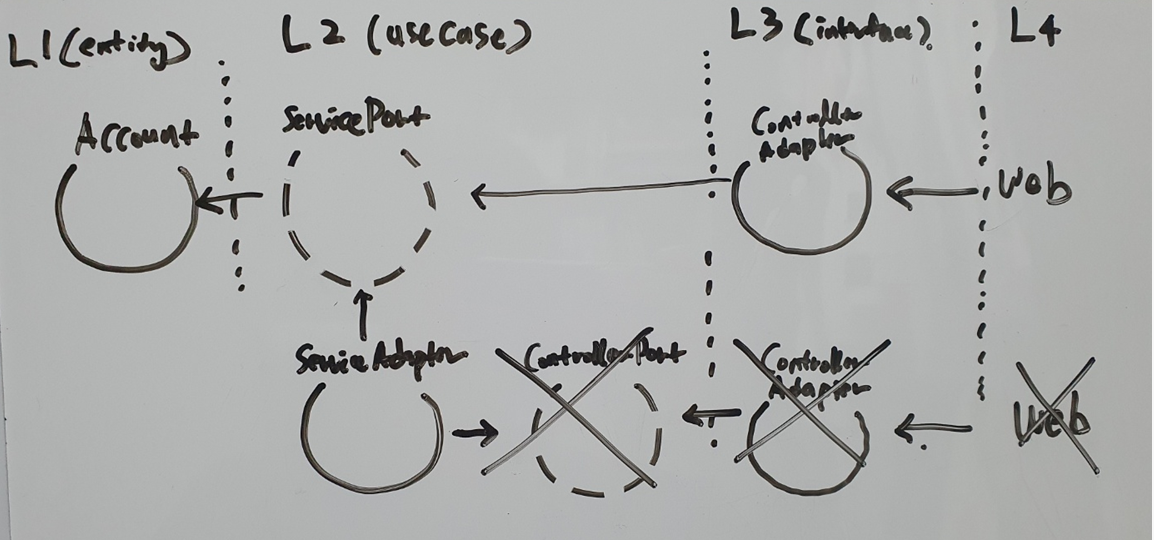 L1 (entity)
L2 (usecase)
L3 (interface)
L4
Account
ServicePort
Controller
Adapter
Web
ServiceAdapter
ControllerPort
Controller
Adapter
Web